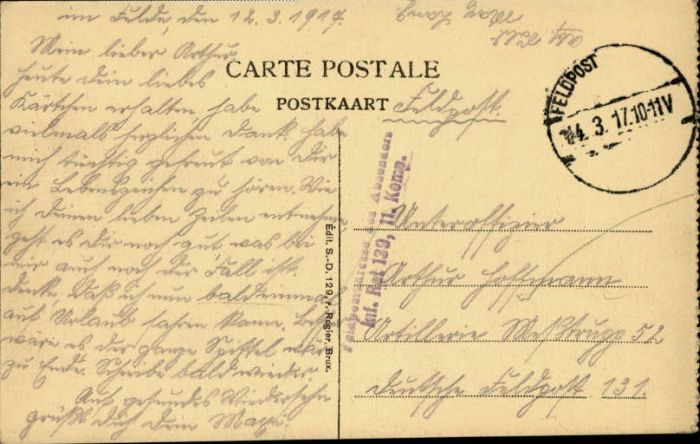 im Felde, den 12. 3. 1917.
Mein lieber Arthur,
heute dein liebes
Kärtchen erhalten habe
vielmals herzlichen Dank. habe
mich tüchtig gefreut von Dir
ein Lebenszeichen zu hören. Wie
ich deinen lieben Zeilen entnehme,
geht es dir noch gut was bei
mir auch noch der Fall ist.
Denke, daß ich nun bald einmal
auf Urlaub fahren kann,
wäre es der ganze wär
zu Ende. Schreibe bald wieder.
Auf gesundes Wiedersehn
grüßt Dich Dein Max.
CARTE POSTALE
POSTKAART
Feldpost.
FELDPOST
14. 3. 17. 10-11V
Feldpostadresse des Absenders
Inf. Rgt 139, 11. Komp.
Édit. S.-D. 129, r. Rogier, Brux.
Unteroffizier
Arthur Hoffmann
Artillerie Meßtrupp 52
Deutsche Feldpost 131.